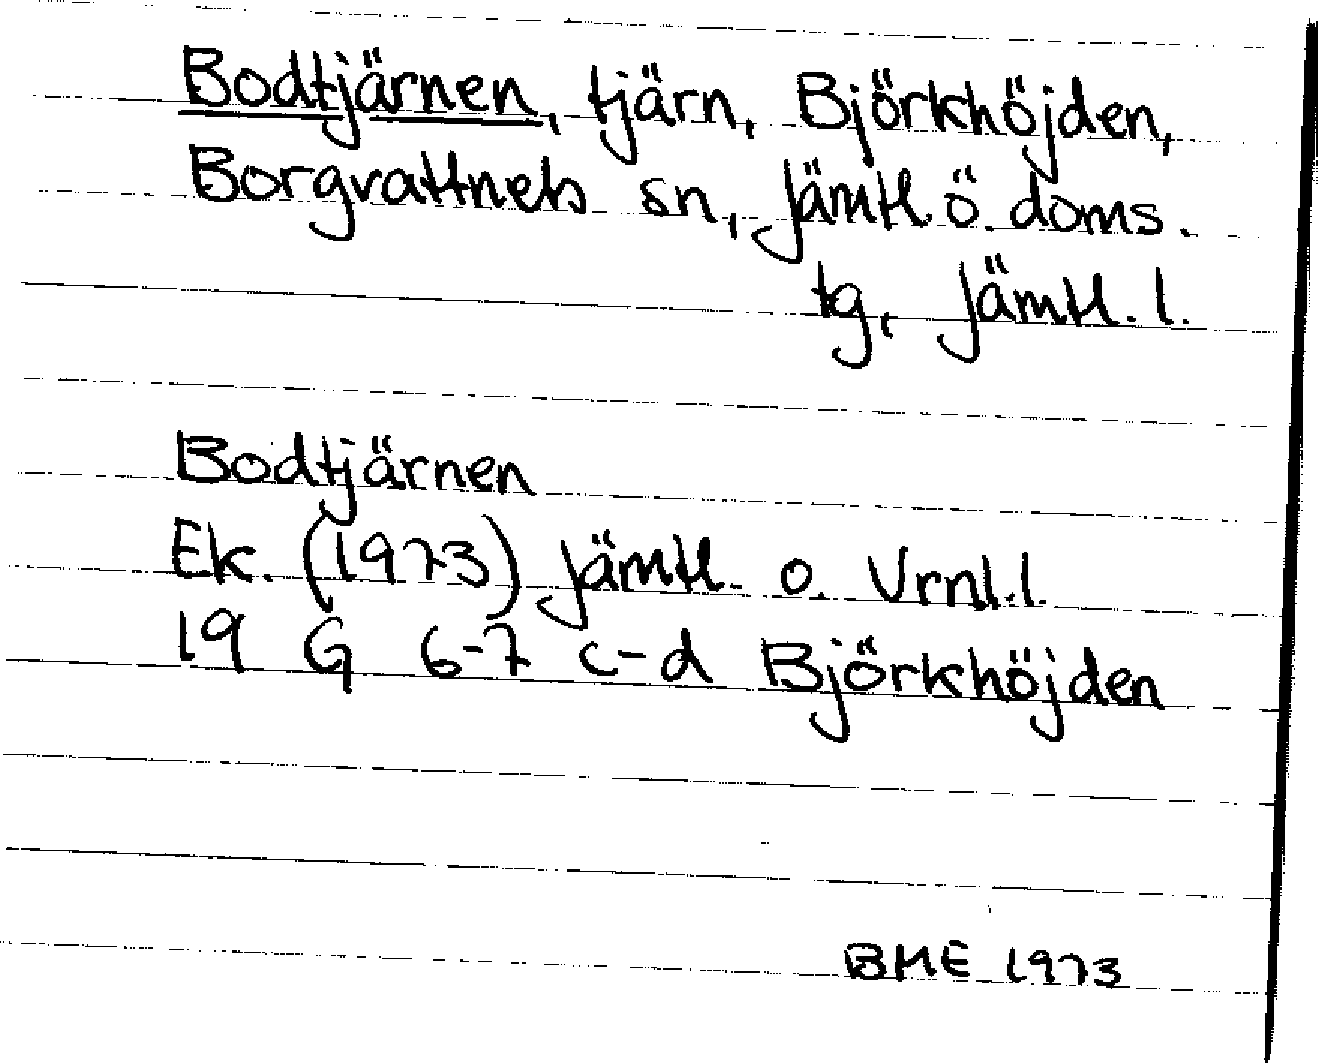 Bodtjärnen, tjärn, Björkhöjden,
Borgvattnets sn, Jämtl. ö. doms.
tg, Jämtl. l.
Bodtjärnen
Ek. (1973) Jämtl. o. Vrnl. l.
19 G 6-7 c-d Björkhöjden
BME 1973